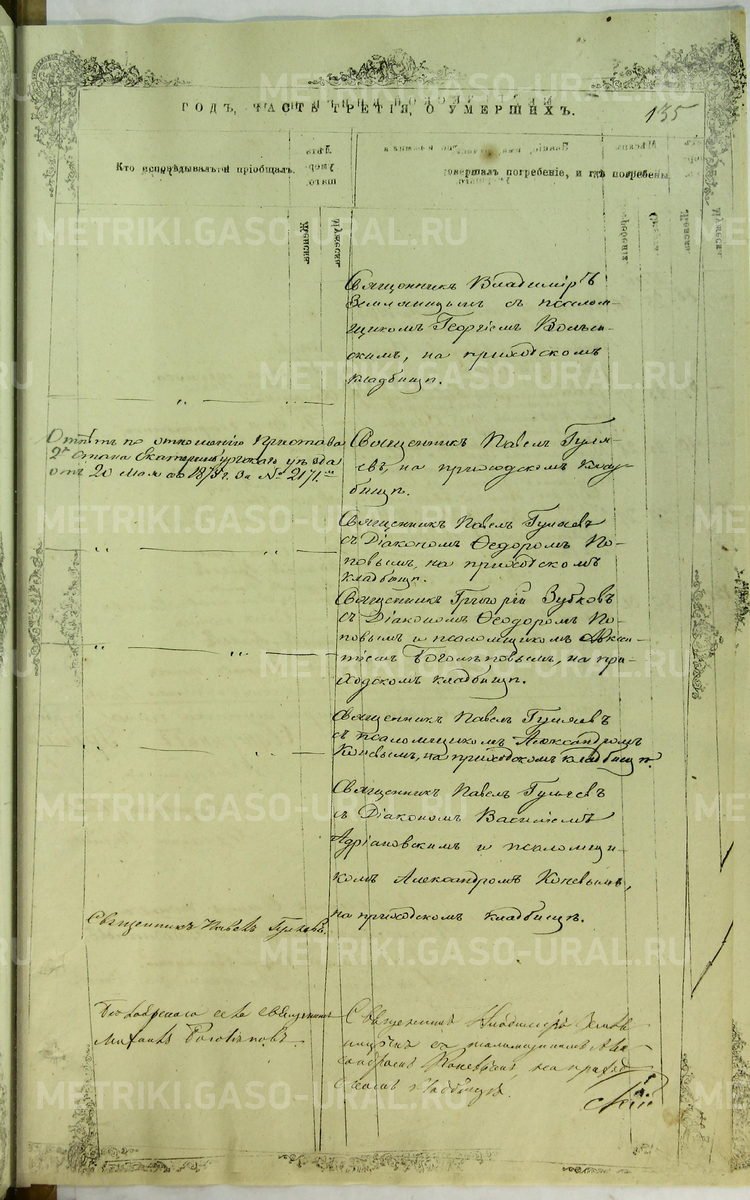 METRIKI.GASO-URAL.RU
ГОДЪ, ЧАСТЬ ТРЕТІЯ, О УМЕРШИХЪ.
135
Кто исповѣдывалъ и пріобщалъ.
совершалъ погребеніе, и гдѣ погребены
Священникъ Владиміръ
Земляницынъ съ псалом-
щикомъ Георгіемъ
скимъ, на приходскомъ
кладбищѣ.
по отношенію Пристава
2го стана Екатеринбургскаго уѣзда
отъ 20 1878 г. за № 2171.
Священникъ Павелъ Гуля-
евъ, на приходскомъ клад-
бищѣ.
Священникъ Павелъ Гуляевъ
съ Діакономъ Ѳеодоромъ По-
повымъ, на приходскомъ
кладбищѣ.
Священникъ Григорій Зубковъ
съ Діакономъ Ѳеодоромъ По-
повымъ и псаломщикомъ Авксен-
тіемъ Богомѣповымъ, на при-
ходскомъ кладбищѣ.
Священникъ Павелъ Гуляевъ
съ псаломщикомъ Александромъ
Коневымъ, на приходскомъ кладбищѣ.
Священникъ Павелъ Гуляевъ
съ Діакономъ Василіемъ
Адріановскимъ и псаломщи-
комъ Александромъ Коневымъ,
на приходскомъ кладбищѣ.
Священникъ Павелъ Гуляевъ.
села священникъ
Михаилъ
Священникъ Владиміръ Земля-
ницынъ съ псаломщикомъ Алек-
сандромъ Коневымъ, на приход-
скомъ кладбищѣ.